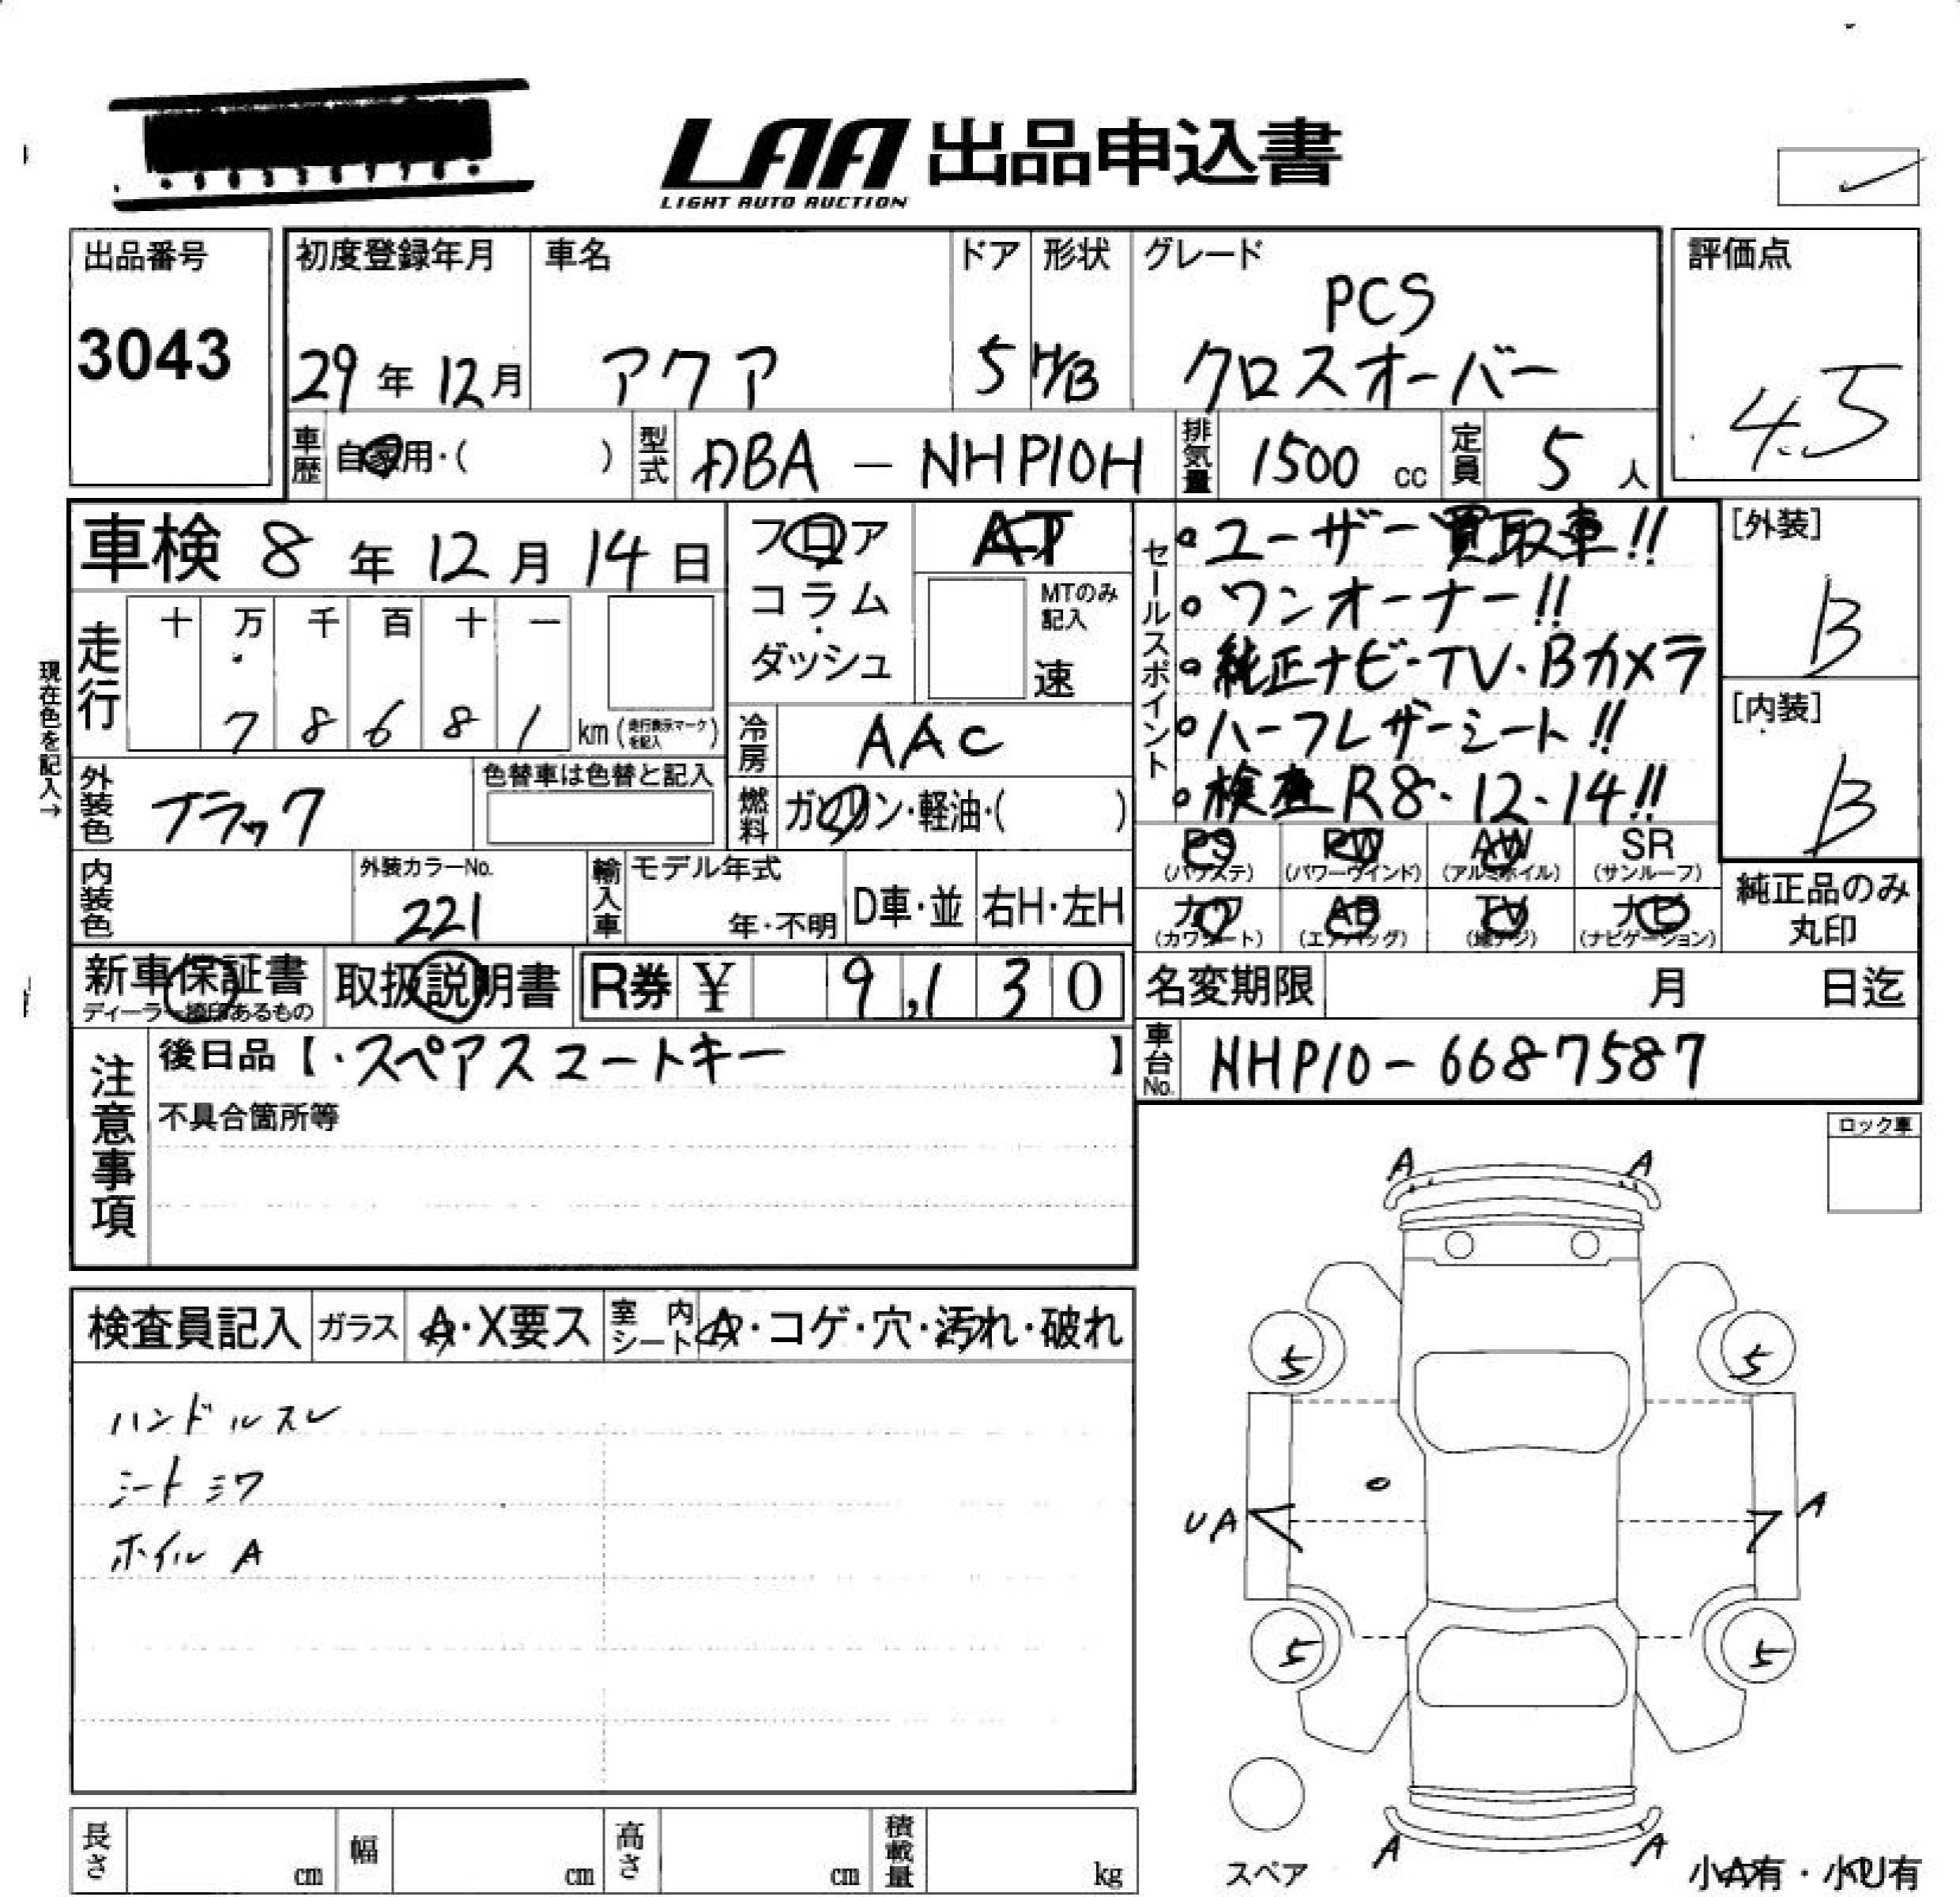 LAA 出品申込書
LIGHT AUTO AUCTION
出品番号
3043
初度登録年月
29年12月
車名
アクア
ドア
5
形状
H/B
グレード
PCS
クロスオーバー
評価点
4.5
車歴
自家用・( )
型式
DBA - NHP10H
排気量
1500 cc
定員
5人
車検 8年12月14日
現在色を記入→
走行
十 万 千 百 十 一
7 8 6 8 1 km (走行表示マークを記入)
フロア
コラム・
ダッシュ
AT
MTのみ記入
速
冷房
AAC
燃料
ガソリン・軽油・( )
外装色
ブラック
色替車は色替と記入
内装色
外装カラーNo.
221
輸入車
モデル年式
年・不明
D車・並
右H・左H
セールスポイント
・ユーザー買取車!!
・ワンオーナー!!
・純正ナビ・TV・Bカメラ
・ハーフレザーシート!!
・検査R8・12・14!!
[外装]
B
[内装]
B
PS (パワステ)
PW (パワーウインド)
AW (アルミホイル)
SR (サンルーフ)
カワ (カワシート)
AB (エアバッグ)
TV (地デジ)
ナビ (ナビゲーション)
純正品のみ
丸印
新車保証書
ディーラー捺印あるもの
取扱説明書
R券 ¥ 9,130
名変期限 月 日迄
車台No.
NHP10-6687587
注意事項
後日品【・スペアスマートキー 】
不具合箇所等
ロック車
検査員記入
ガラス
A・X要ス
室内シート
A・コゲ・穴・汚れ・破れ
ハンドルスレ
シートシワ
ホイルA
A A
5 5
UA A
5 5
A A
スペア
小A有・小U有
長さ cm
幅 cm
高さ cm
積載量 kg